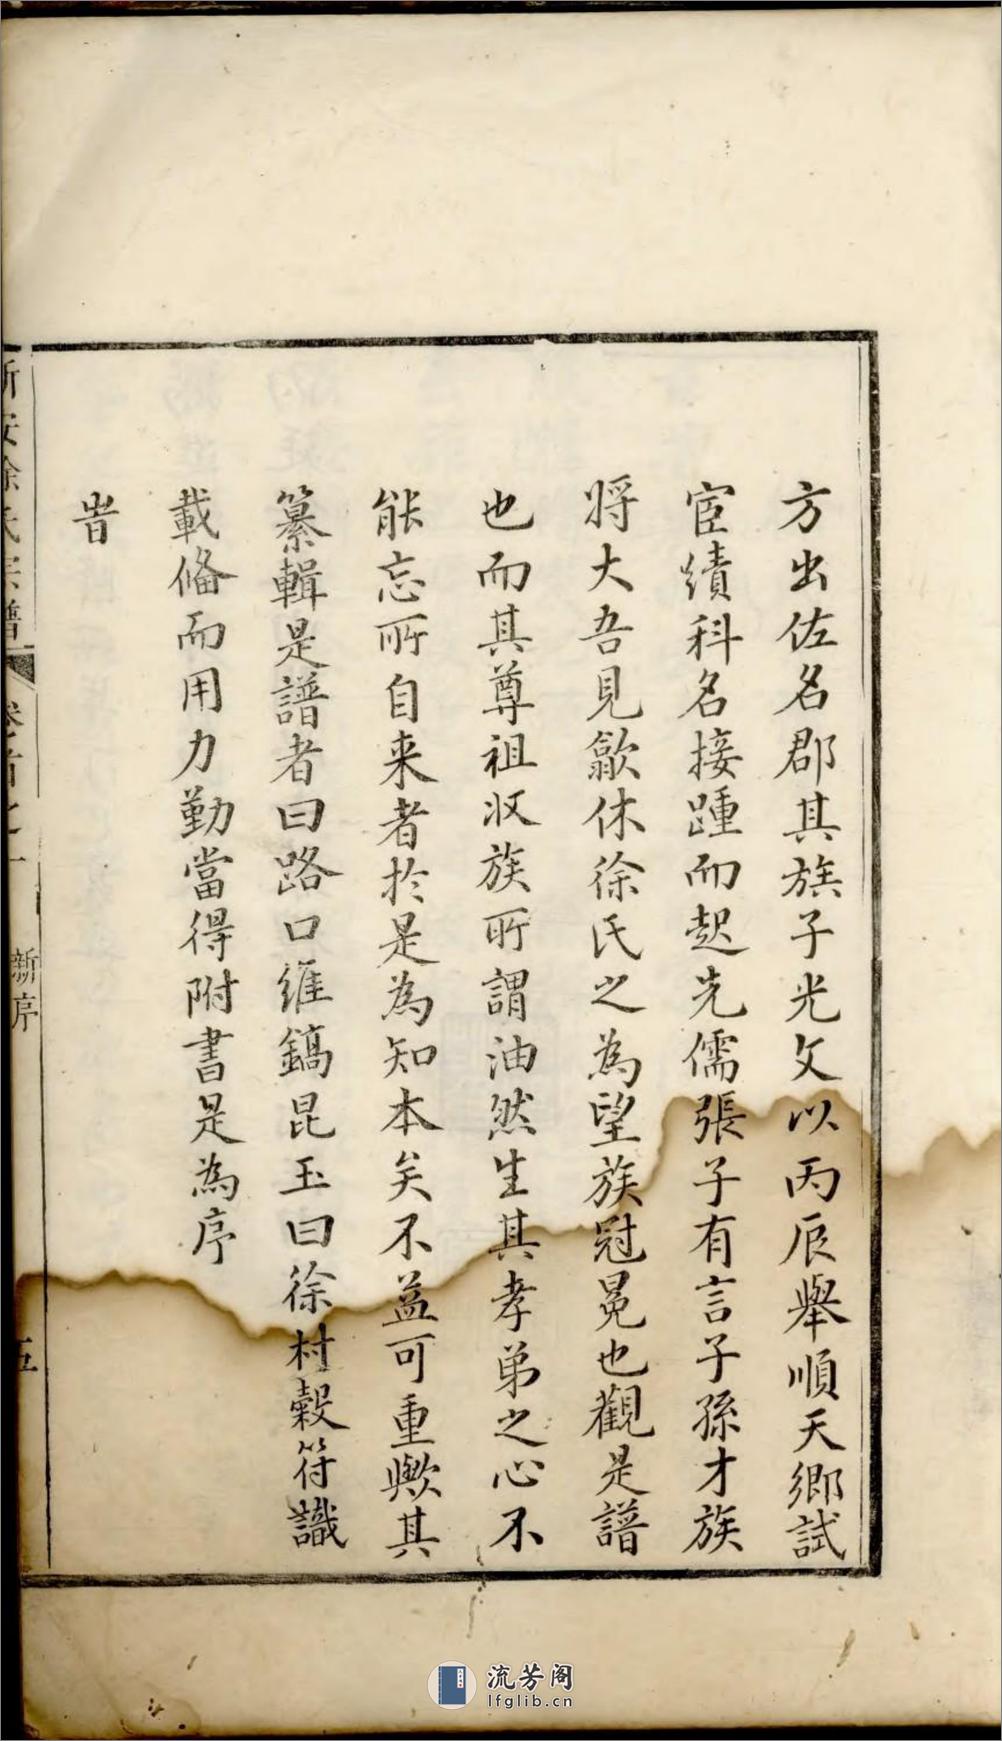 方出佐名郡其族子光文以丙辰舉順天鄉試
宦績科名接踵而起先儒張子有言子孫才族
將大吾見歙休徐氏之為望族冠冕也觀是譜
也而其尊祖收族所謂油然生其孝弟之心不
能忘所自来者於是為知本矣不益可重歟其
纂輯是譜者曰路口維鎬昆玉曰徐村穀符識
載俻而用力勤當得附書是為序
旹
新安徐氏宗譜 卷首之一 新序 五
流芳阁
lfglib.cn